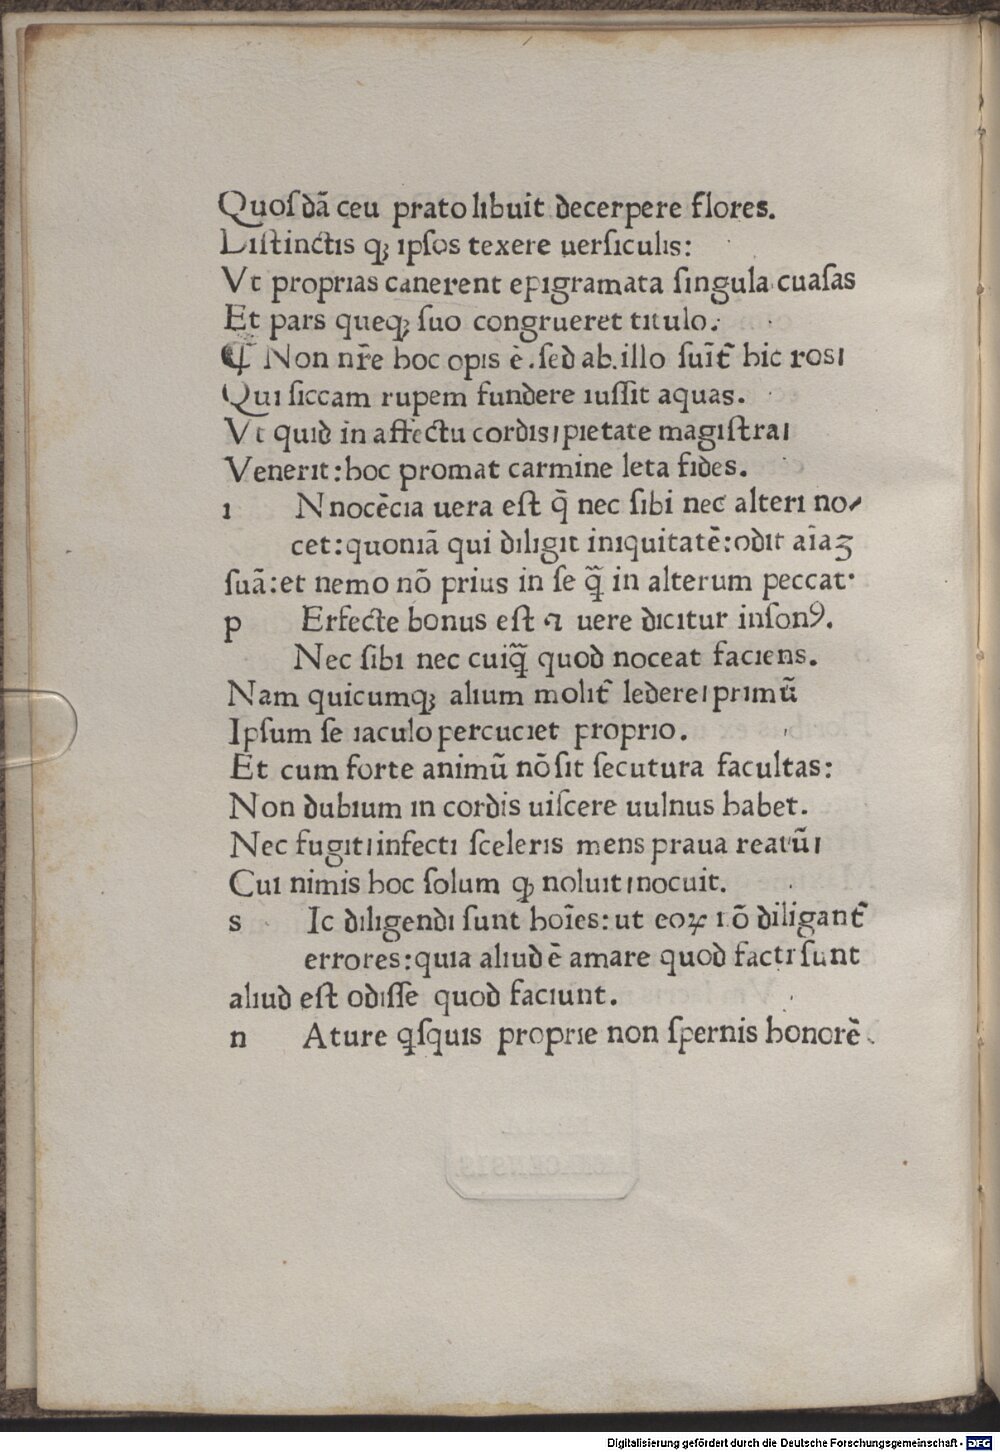 Quoſdã ceu prato libuit decerpere flores.
Diſtinctis qꝫ ipſos texere uerſiculis:
Vt proprias canerent epigramata ſingula cuaſas
Et pars queqꝫ ſuo congrueret titulo.
¶ Non nr̃e hoc opis ẽ. ſed ab. illo ſuit᷑ hic rosı
Qui ſiccam rupem fundere iuſſit aquas.
Vt quid in affectu cordisıpietate magiſtraı
Venerit:hoc promat carmine leta fides.
i Nnocẽcia uera eſt q̃ nec ſibi nec alteri no⸗
cet:quoniã qui diligit iniquitatẽ:odit aĩaꝫ
ſuã:et nemo nõ prius in ſe q̃ in alterum peccat·
p Erfecte bonus eſt ⁊ uere dicitur inſonꝰ.
Nec ſibi nec cuiq̃ quod noceat faciens.
Nam quicumqꝫ alium molit᷑ ledereıprimũ
Ipſum ſe iaculo percuciet proprio.
Et cum forte animũ nõſit ſecutura facultas:
Non dubium in cordis uiſcere uulnus habet.
Nec fugitıinfecti ſceleris mens praua reatũı
Cui nimis hoc ſolum qꝫ noluitınocuit.
s Ic diligendi ſunt hoĩes:ut eoꝝ nõ diligant᷑
errores:quia aliud ẽ amare quod facti ſunt
aliud eſt odiſſe quod faciunt.
n Ature qͥſquis proprie non ſpernis honorẽ
Digitalisierung gefördert durch die Deutsche Forschungsgemeinschaft - DFG